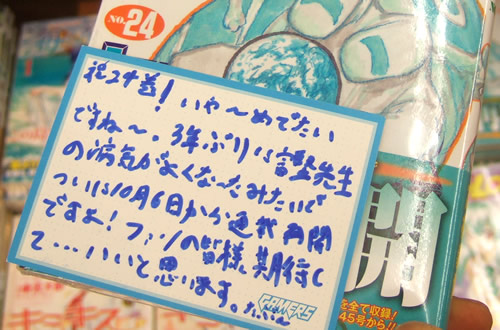 NO.24
祝24巻！いや〜めでたい
ですね〜。3年ぶりに富樫先生
の病気がよくなったみたいで
ついに10月6日から連載再開
ですよ！ファンの皆様、期待し
て…いいと思います。
GAMERS
開
を全て収録！
45号から!!